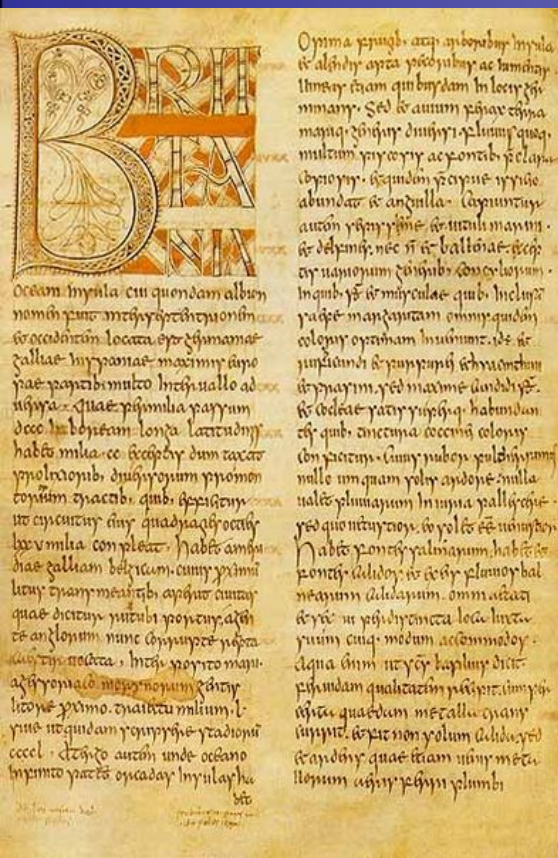 BRIT
TA
NIA
oceani Insula cui quondam albion
nomen fuit Inter septentrionem
et occidentem locata est germaniae
galliae hispaniae maximis euro
pae partib; multo Interuallo ad
uersa. Quae per milia passuum
dccc In boream longa latitudinis
habet milia .cc. exceptis dum taxat
prolixiorib; diuersorum promon
toriorum tractib; quib; efficitur
ut circuitus eius quadragies octies
lxxu milia conpleat. habet a meri
die galliam belgicam. cuius proximū
litus transmeantib; aperit ciuitas
quae dicitur rutubi portus. a gen
te anglorum nunc corrupte
uocata. Interposito mari.
a gessoriaco morynorum gentis
litore proximo. traiectu milium .l.
siue ut quidam scripsere stadiorū
ccccl. A tergo autem unde oceano
Infinito patet orcadas Insulas ha
bet
Opima frugib; atq; arborib; Insula
et alendis apta pecorib; ac Iumentis
uineas etiam quibusdam In locis ger
minans. Sed et auium ferax terra
mariq; generis diuersi. fluuiis quoq;
multum piscosis ac fontib; praeclara
copiosis. et quidem praecipue issicio
abundat et anguilla. Capiuntur
autem saepissime et uituli marini.
et delfines. nec n̄ et ballenae. excep
tis uariorum generib; concyliorum.
In quib; s̄ et musculae quib; Inclusā
saepe margaritam omnis quidem
coloris optimam Inueniunt. id ē et
rubicundi et purpurei et hyacinthini
et prasini. sed maxime candidi. S̄ 
et cocleae satis superq; habundan
tes quib; tinctura coccinei coloris
conficitur. cuius rubor pulcherrimus
nullo umquam solis ardore. nulla
ualet pluuiarum Iniuria pallescere.
sed quo uetustior. eo solet ēē uenustior.
habet fontes salinarum. habet et
fontes calidos. et ex eis fluuios bal
nearum calidarum. omni aetati
et sexui per distincta loca Iuxta
suum cuiq; modum accommodos.
Aqua enim ut s̄cs basilius dicit.
feruidam qualitatem recipit. cum per
certa quaedam metalla transcurrit
currit. et fit non solum calida. sed
et ardens. quae etiam uenis meta
llorum aeris ferri plumbi